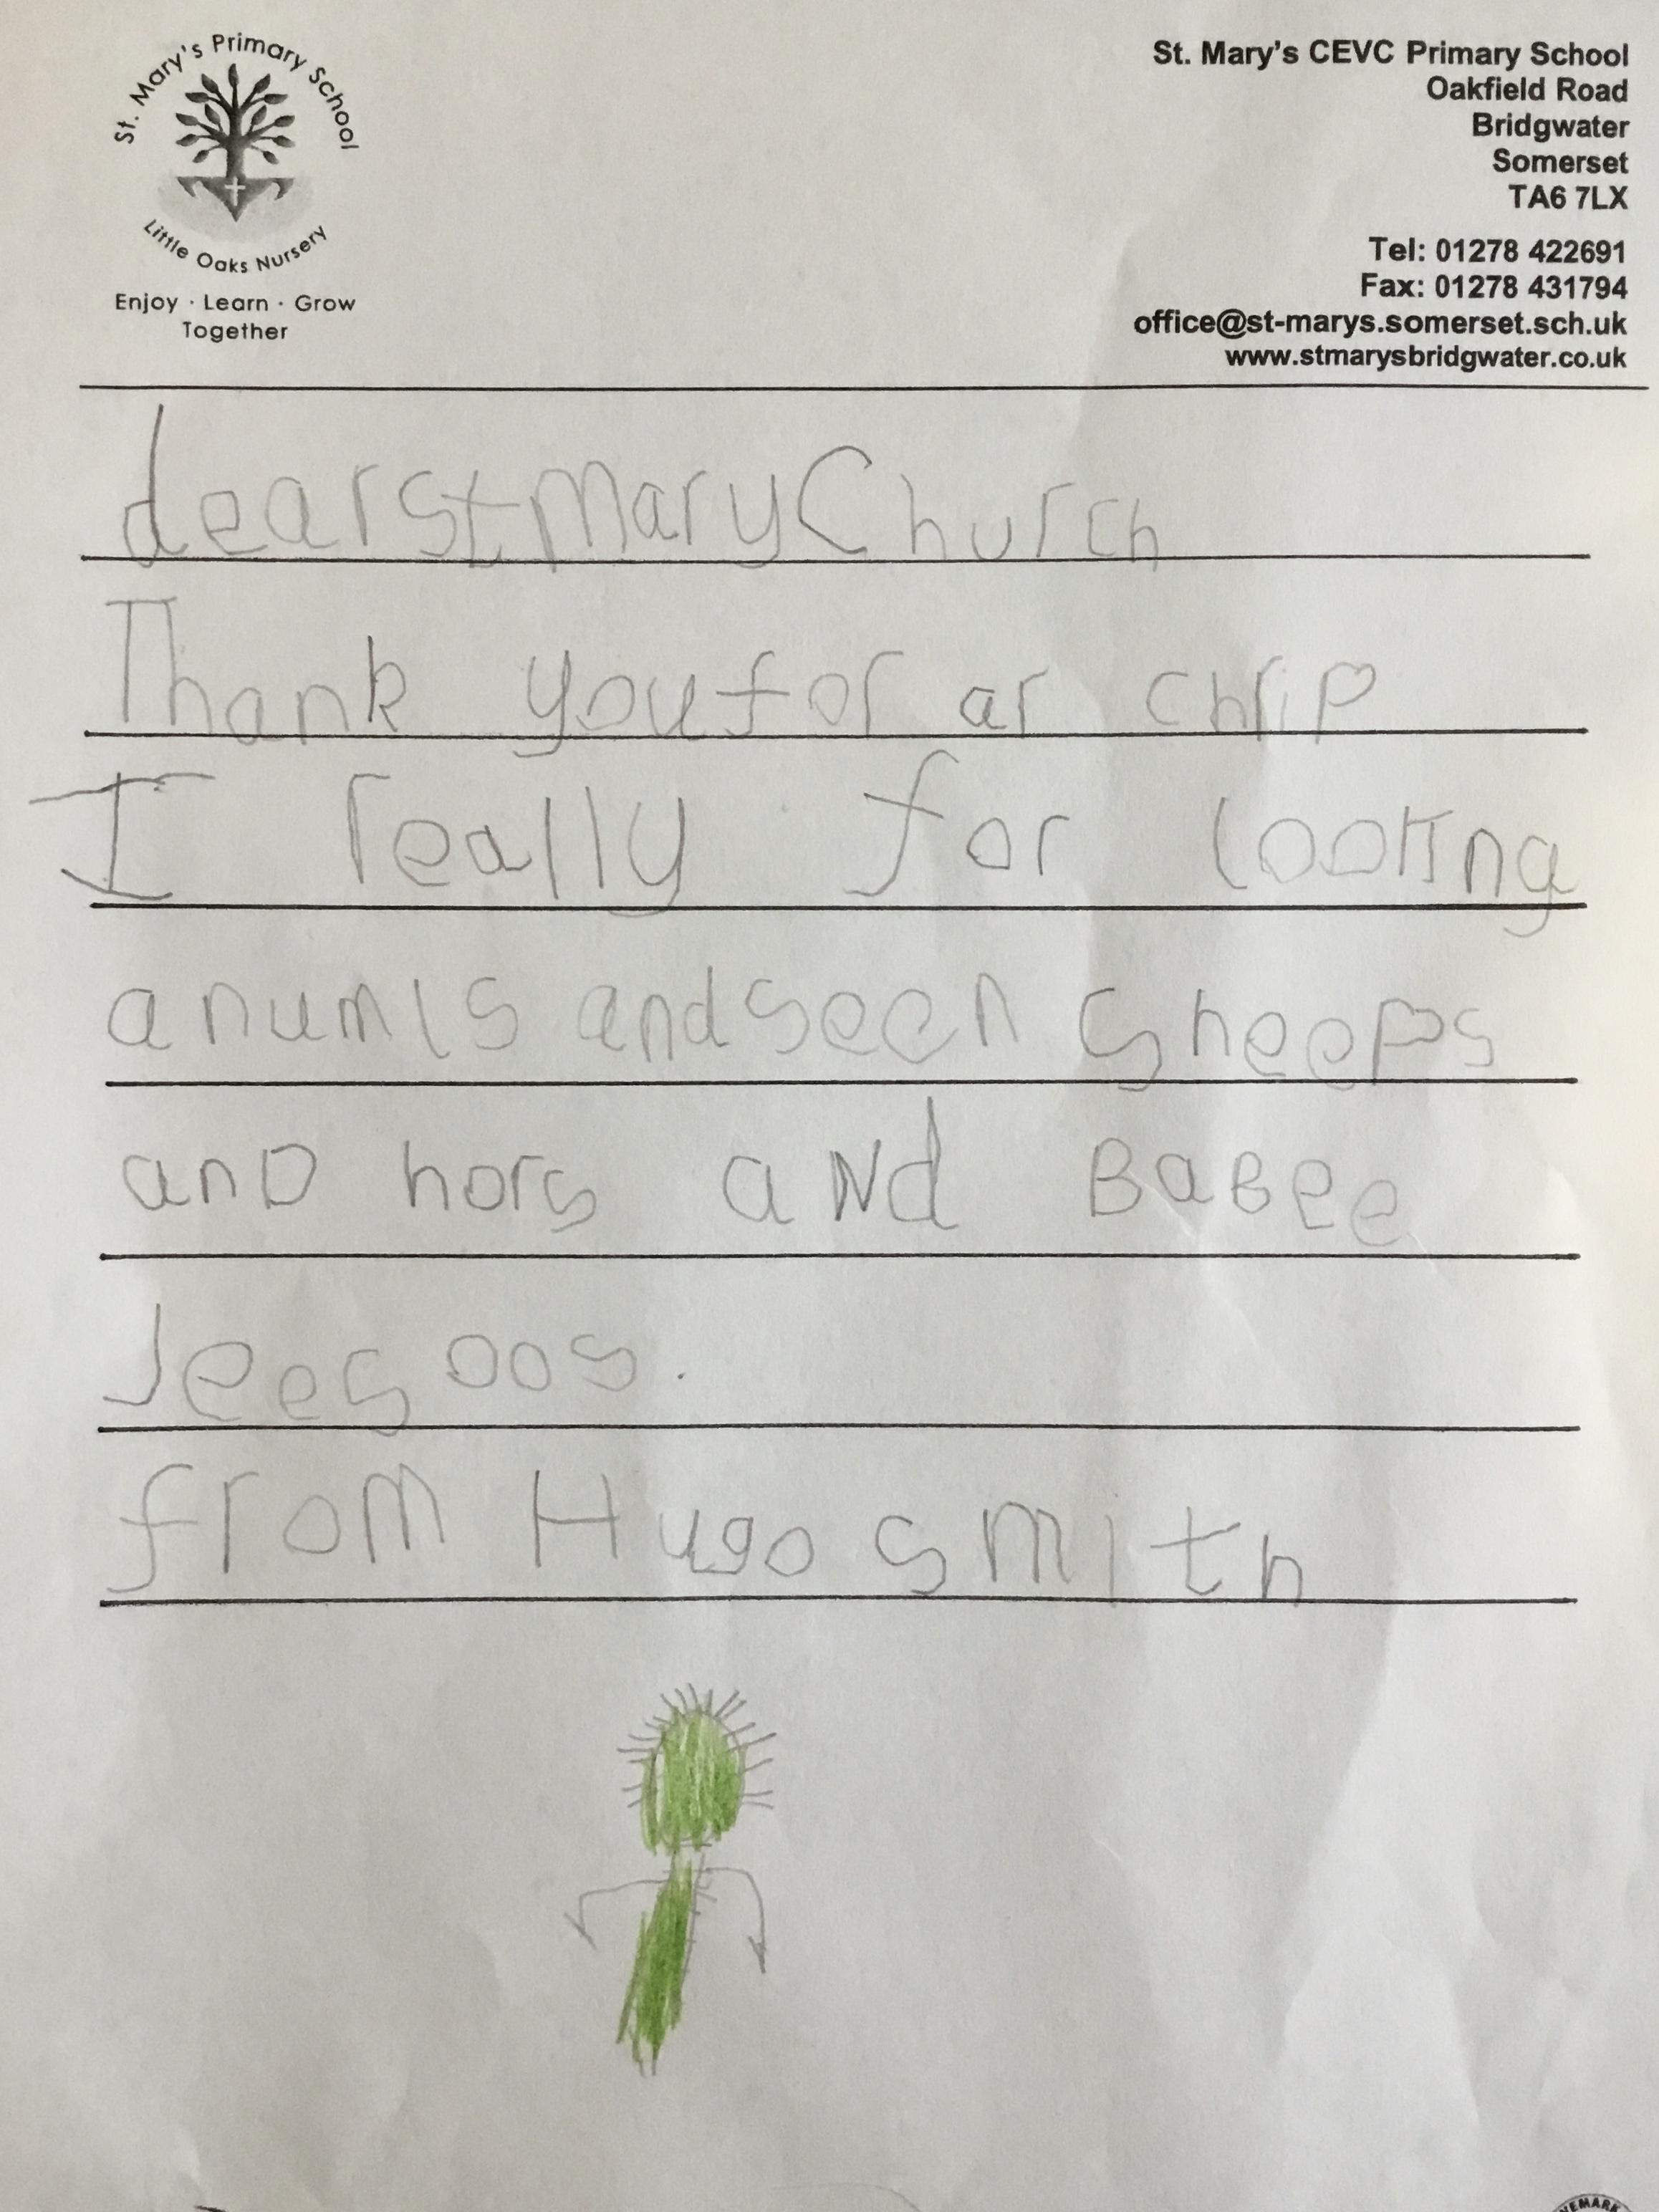 St. Mary's Primary School
Little Oaks Nursery
Enjoy · Learn · Grow
Together
St. Mary's CEVC Primary School
Oakfield Road
Bridgwater
Somerset
TA6 7LX
Tel: 01278 422691
Fax: 01278 431794
office@st-marys.somerset.sch.uk
www.stmarysbridgwater.co.uk
dear St Mary Church
Thank you for ar chrip
I really for looking
anumls and seen sheeps
anD hors aNd BaBee
Jeesoos.
from Hugo smith